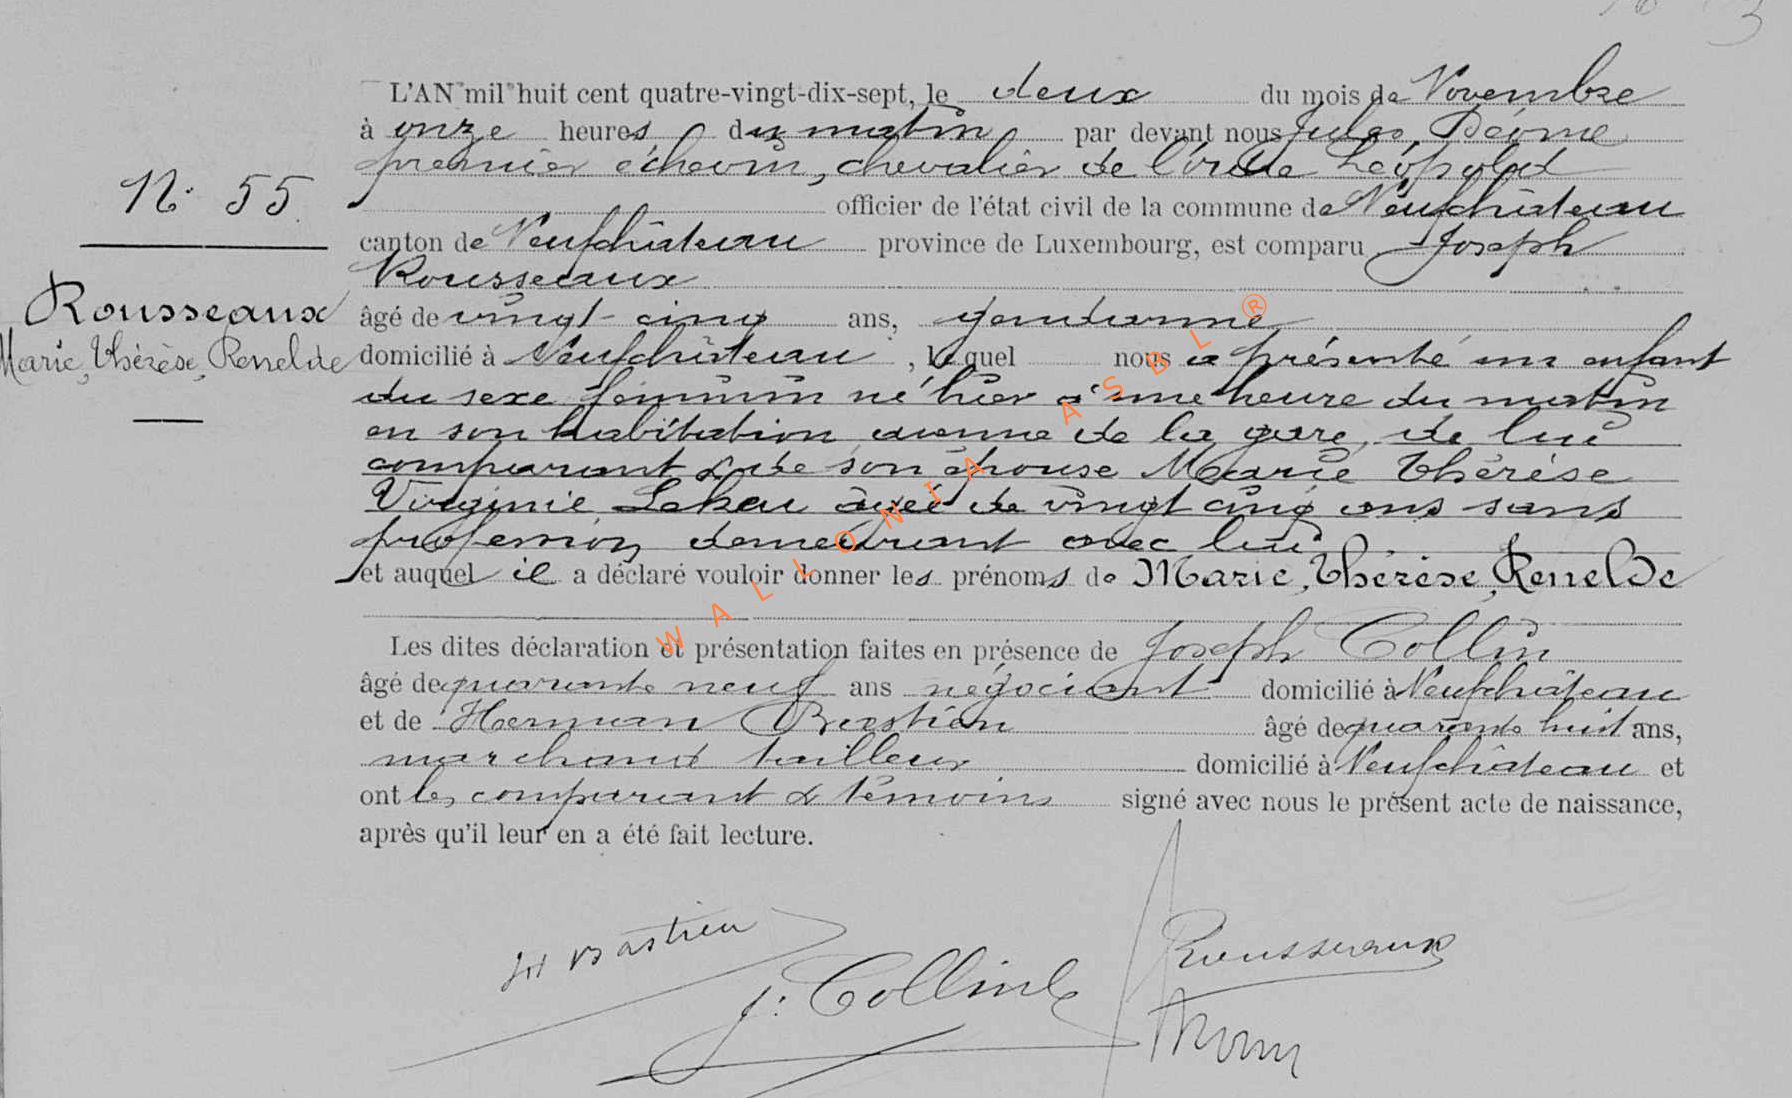 L'AN mil huit cent quatre-vingt-dix-sept, le deux du mois de Novembre
à onze heures du matin par devant nous Jules
premier échevin, chevalier de l'ordre Léopold
N° 55
officier de l'état civil de la commune de Neufchâteau
canton de Neufchâteau province de Luxembourg, est comparu Joseph
Rousseaux
Rousseaux
Marie, Thérèse, Renelde
âgé de vingt-cinq ans, gendarme
domicilié à Neufchâteau, lequel nous a présenté un enfant
du sexe féminin né hier à une heure du matin
en son habitation avenue de la gare, de lui
comparant & de son épouse Marie Thérèse
Virginie âgée de vingt cinq ans sans
profession demeurant avec lui
et auquel il a déclaré vouloir donner les prénoms de Marie, Thérèse, Renelde
Les dites déclaration et présentation faites en présence de Joseph Collin
âgé de quarante neuf ans négociant domicilié à Neufchâteau
et de Herman Bastien âgé de quarante huit ans,
marchand tailleur domicilié à Neufchâteau et
ont les comparant & témoins signé avec nous le présent acte de naissance,
après qu'il leur en a été fait lecture.
WALLONIA ASBL ®
H Bastien
J. Collin
Rousseaux